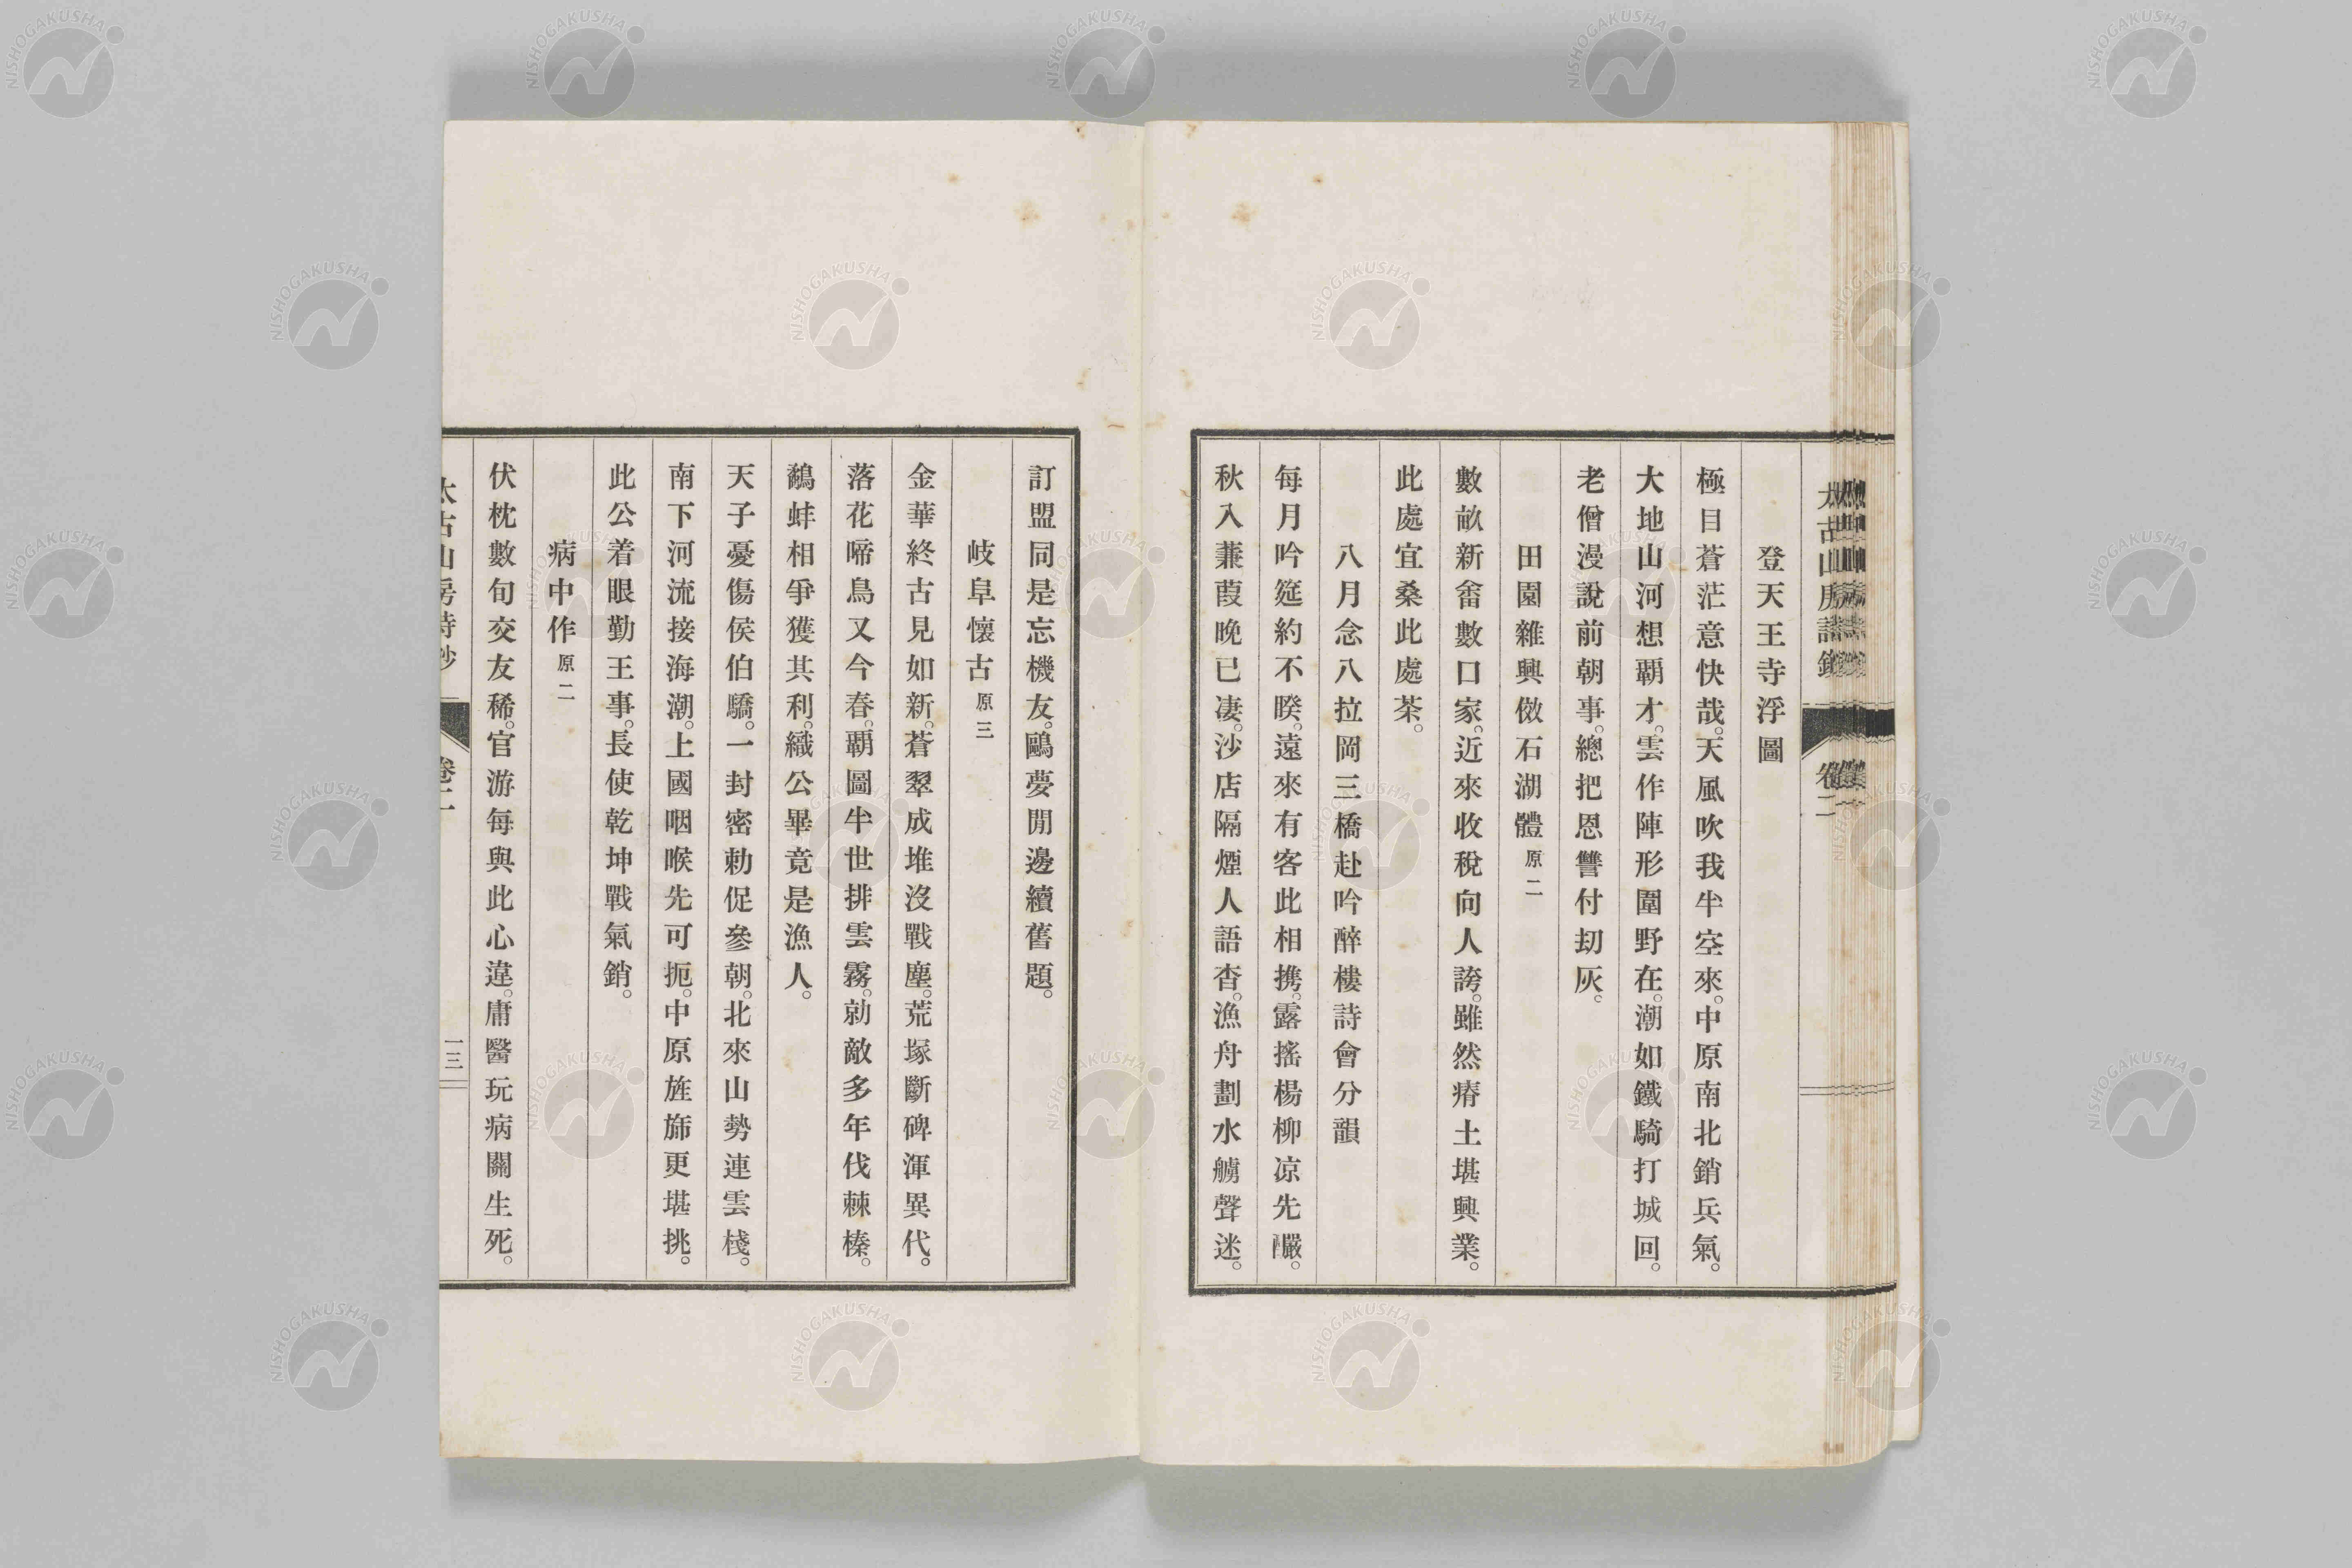 太古山房詩鈔 卷二
登天王寺浮圖
極目蒼茫意快哉。天風吹我半空來。中原南北銷兵氣。
大地山河想覇才。雲作陣形圍野在。潮如鐵騎打城回。
老僧漫說前朝事。總把恩讐付刧灰。
田園雜興倣石湖體 原二
數畝新畬數口家。近來收稅向人誇。雖然瘠土堪興業。
此處宜桑此處茶。
八月念八拉岡三橋赴吟醉樓詩會分韻
每月吟筵約不睽。遠來有客此相携。露搖楊柳凉先釅。
秋入蒹葭晚已凄。沙店隔煙人語杳。漁舟劃水艣聲迷。
訂盟同是忘機友。鷗夢閒邊續舊題。
岐阜懷古 原三
金華終古見如新。蒼翠成堆沒戰塵。荒塚斷碑渾異代。
落花啼鳥又今春。覇圖半世排雲霧。勍敵多年伐棘榛。
鷸蚌相爭獲其利。織公畢竟是漁人。
天子憂傷侯伯驕。一封密勅促參朝。北來山勢連雲棧。
南下河流接海潮。上國咽喉先可扼。中原旌斾更堪挑。
此公着眼勤王事。長使乾坤戰氣銷。
病中作 原二
伏枕數旬交友稀。官游每與此心違。庸醫玩病關生死。
太古山房詩鈔 卷二 一三
NISHOGAKUSHA